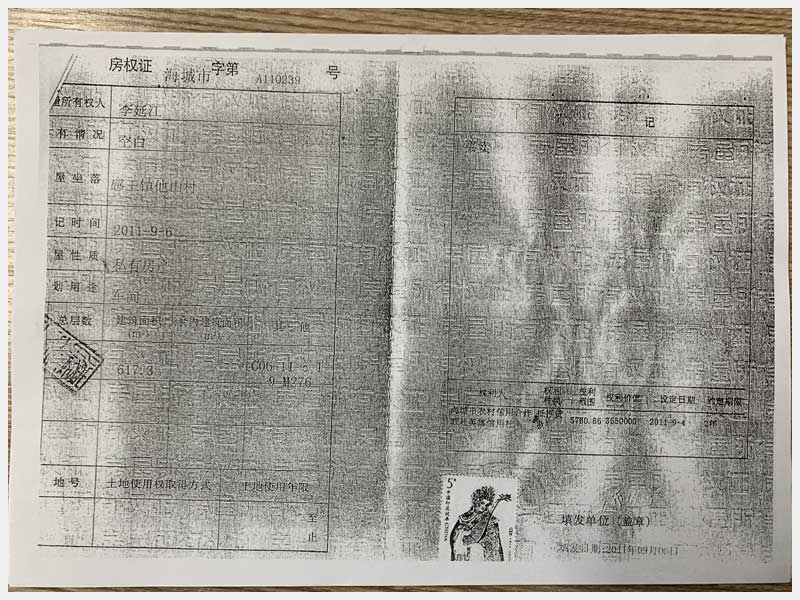 房权证 海城市 字第 A110239 号
所有权人 李延江
有情况 空白
屋坐落 感王镇他山村
记时间 2011-9-6
屋性质 私有房产
划用途 车间
总层数 建筑面积(m²) 套内建筑面积(m²) 其他
617.3
9-M276
地号 土地使用权取得方式 土地使用年限
至
止
记
权利人 权利种类 权利范围 权利价值 设定日期 约定期限
海城市农村信用合作 抵押
5780.66 3650000 2011-9-4 2年
填发单位（盖章）
填发日期:2011年09月06日